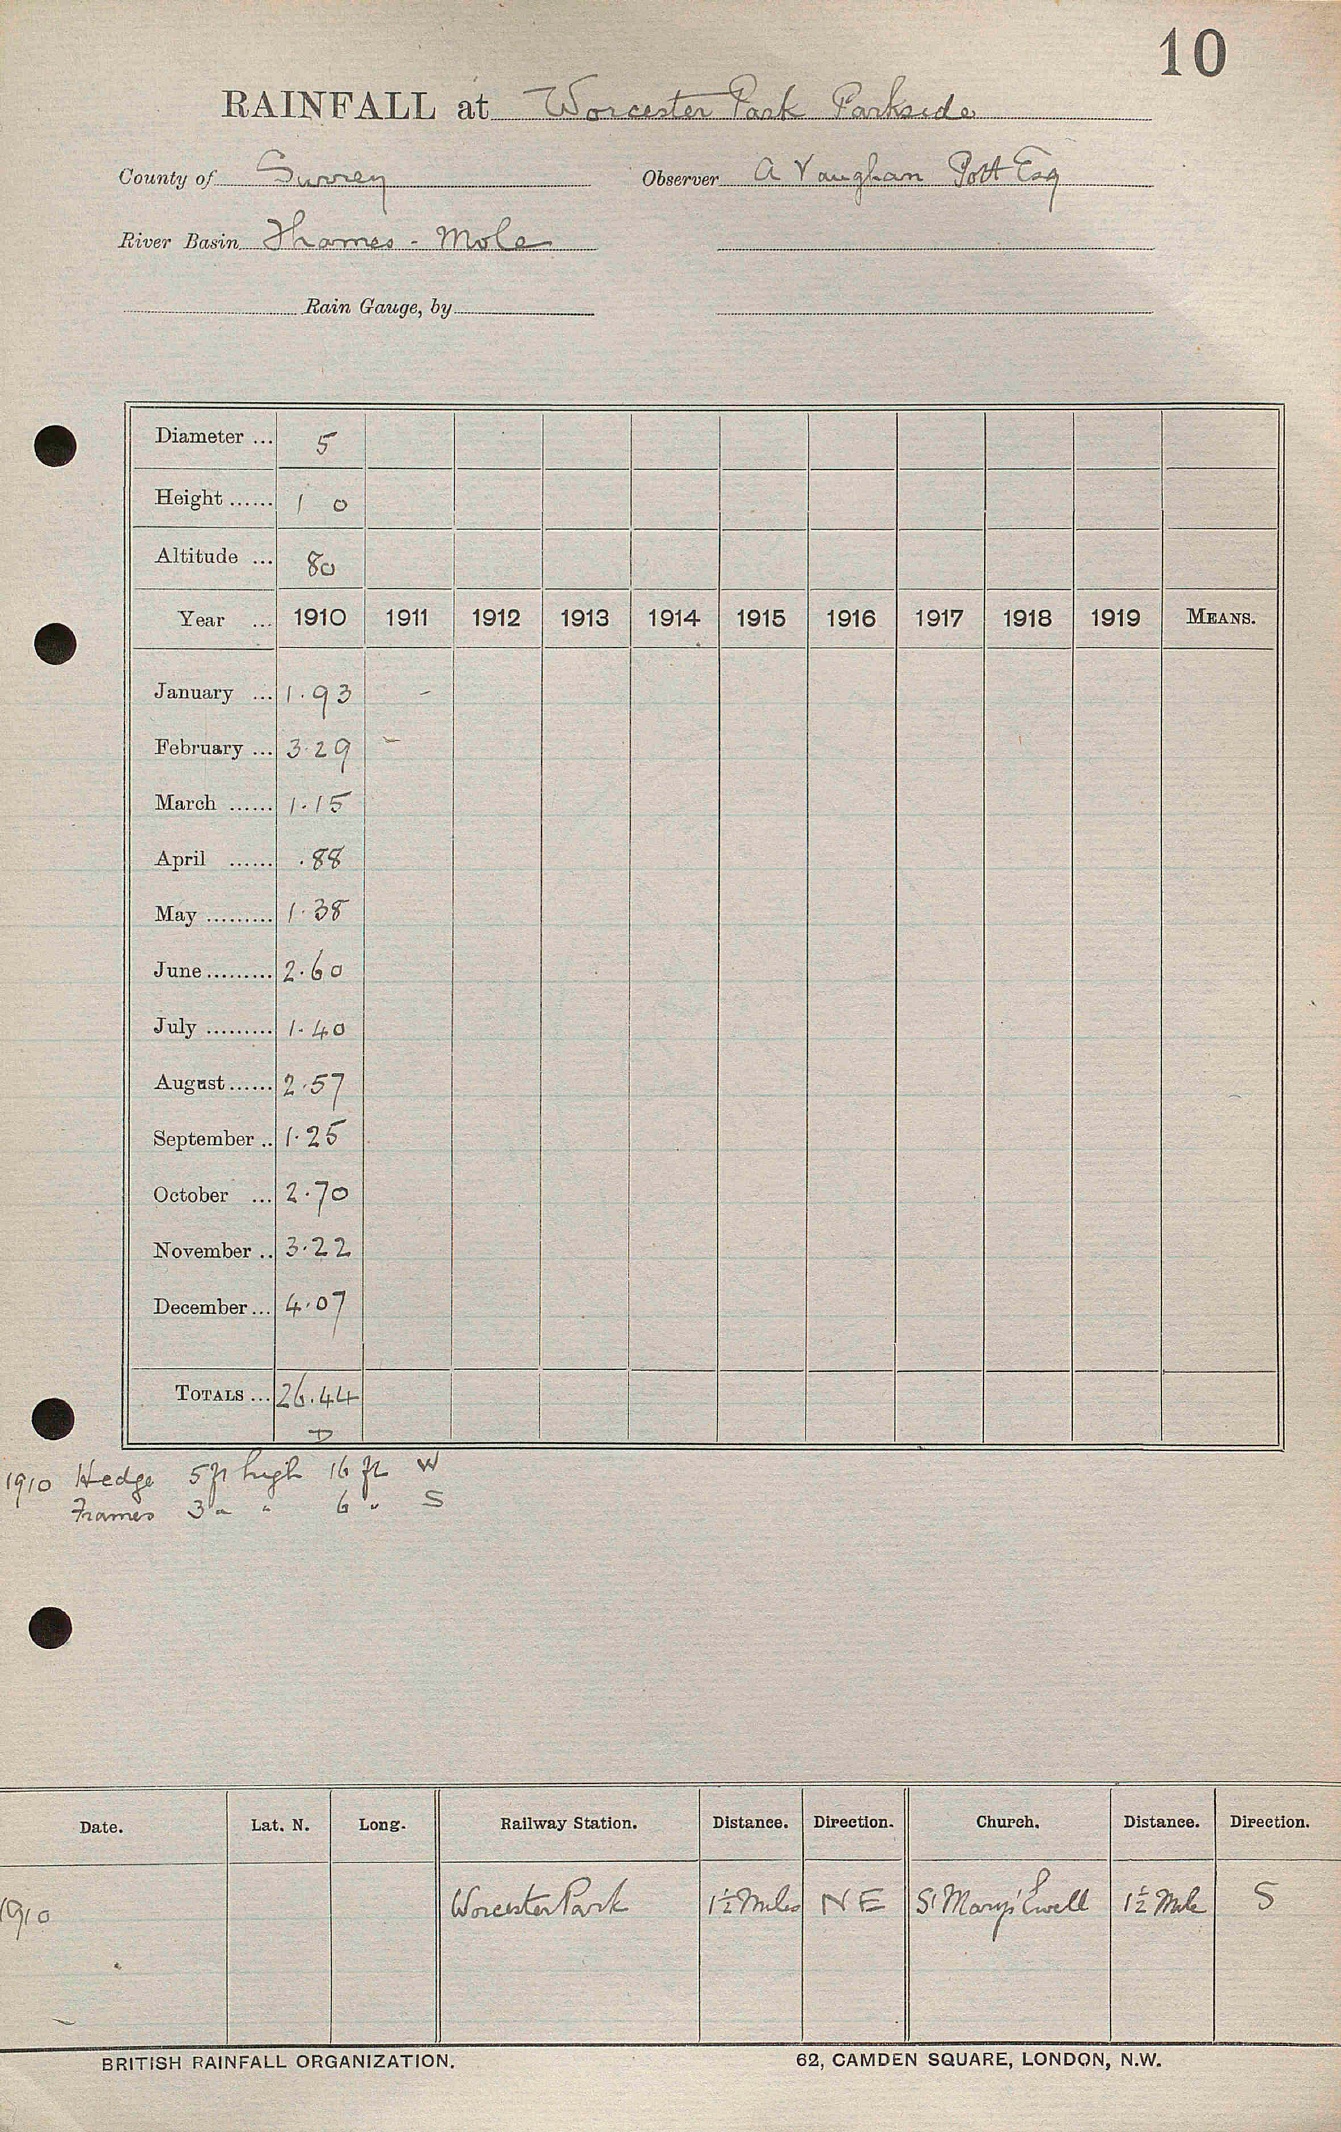 10
RAINFALL at Worcester Park Parkside
County of Surrey Observer A Vaughan Pott Esq
River Basin Thames - Mole
Rain Gauge, by
Diameter ... 5
Height ...... 1 0
Altitude ... 80
Year ... 1910 1911 1912 1913 1914 1915 1916 1917 1918 1919 MEANS.
January ... 1.93 -
February ... 3.29 -
March ...... 1.15
April ...... .88
May ......... 1.38
June ......... 2.60
July ......... 1.40
August ...... 2.57
September .. 1.25
October ... 2.70
November .. 3.22
December ... 4.07
TOTALS ... 26.44
D
1910 Hedge 5 ft high 16 ft W
Frames 3 " " 6 " S
Date. Lat. N. Long. Railway Station. Distance. Direction. Church. Distance. Direction.
1910 Worcester Park 1½ Miles NE St Mary's Ewell 1½ Mile S
BRITISH RAINFALL ORGANIZATION. 62, CAMDEN SQUARE, LONDON, N.W.